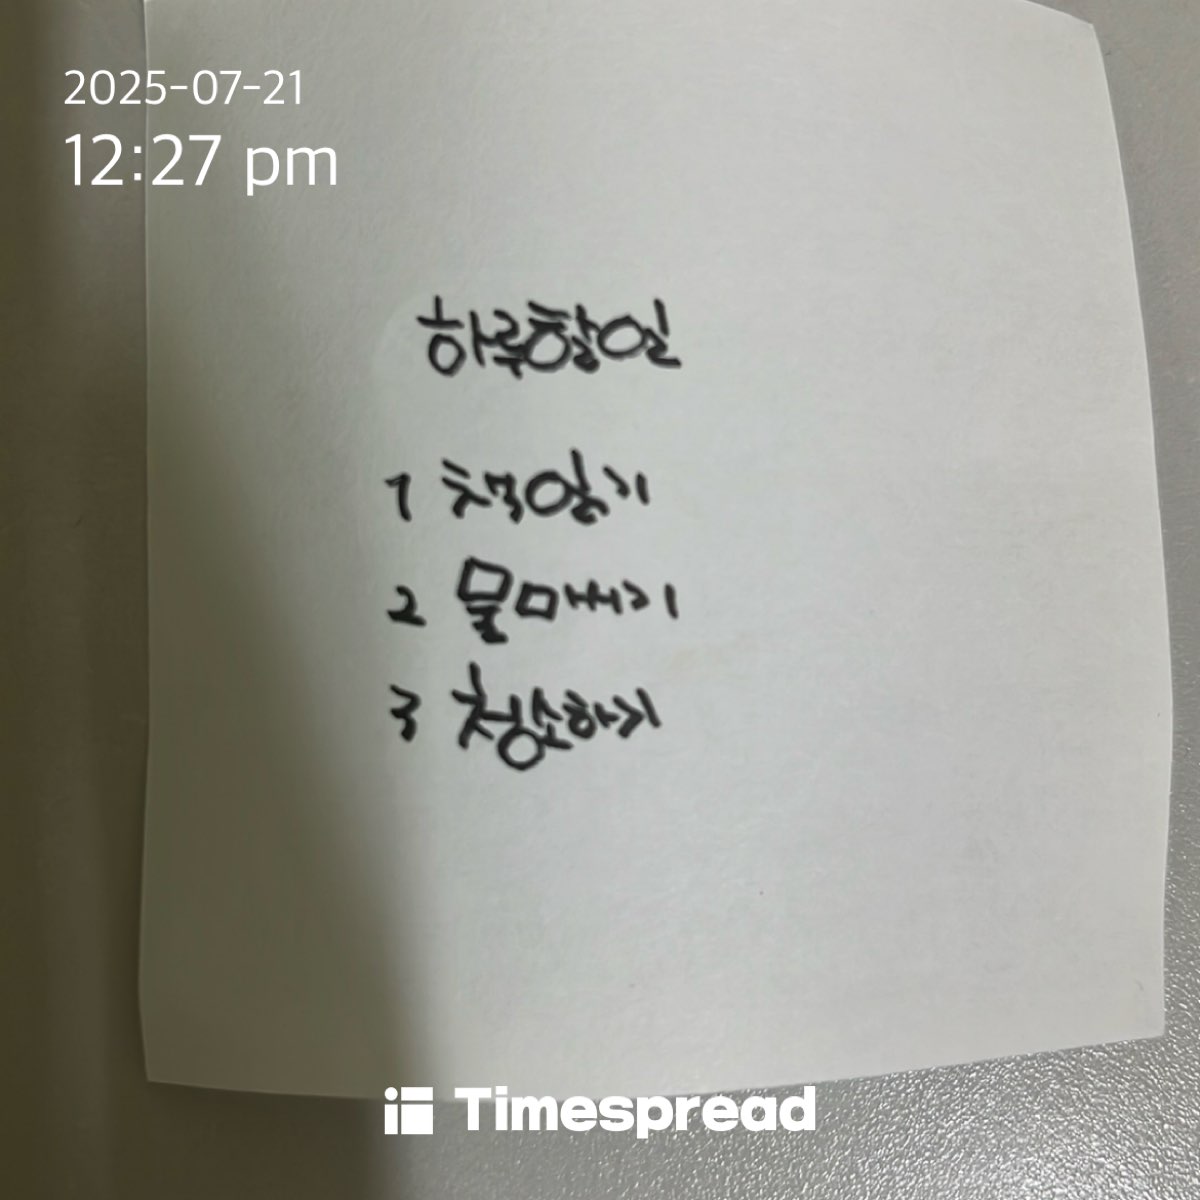 2025-07-21
12:27 pm
하루할일
1 책읽기
2 물마시기
3 청소하기
Timespread